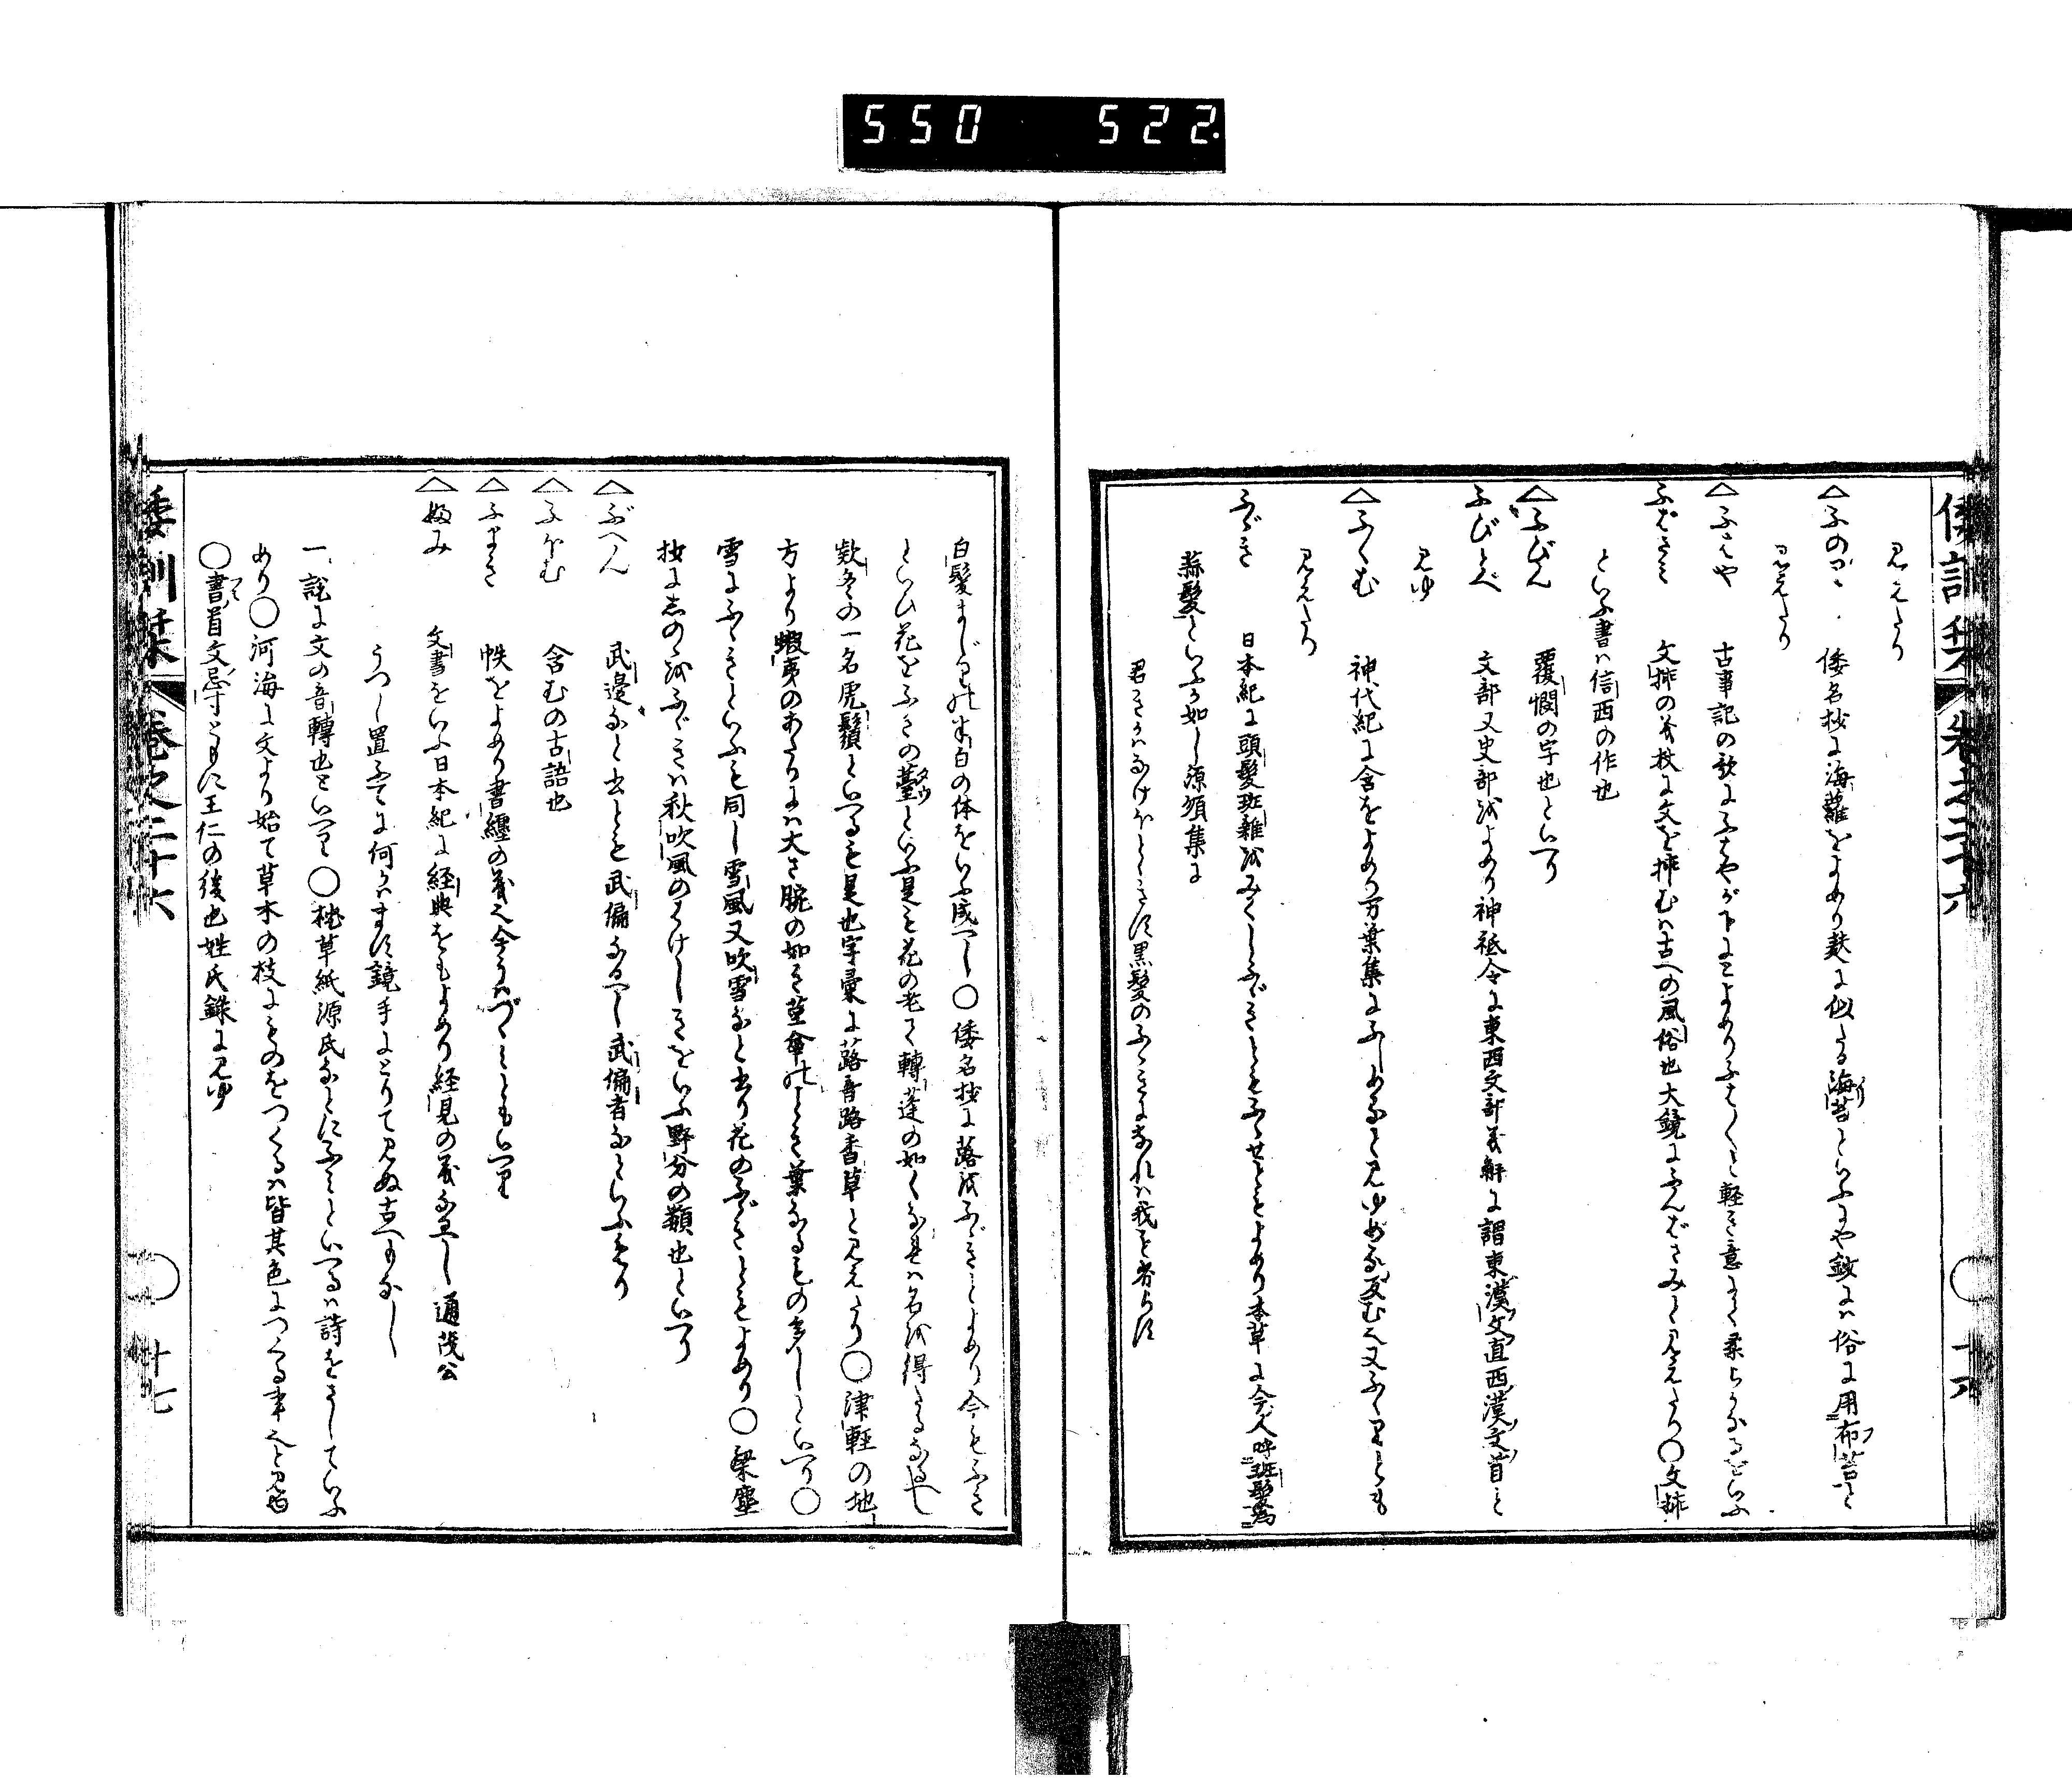 550 522
倭訓栞 巻之二十六 〇 十六
見えたり
△ふのり 倭名抄に海蘿をよめり麩に似たる海苔といふにや 俗に用布苔と
見えたり
△ふはや 古事記の歌にふはやが下にとよめりふは〳〵と軽き意にて柔らかなるをいふ
ふばさみ 文挿の義杖に文を挿むは古への風俗也大鏡にふんばさみと見えたり〇文挿
といふ書は信西の作也
△ふびん 覆憫の字也といへり
ふびとべ 文部又史部をよめり神祇令に東西文部義解に謂東漢文直西漢文首と
見ゆ
△ふゝむ 神代紀に含をよめり万葉集にふゝめると見ゆめる反む也又ふくりとも
見えたり
ふゞき 日本紀に頭髪班雑をみぐしふゞきとも よめり本草に今人呼班髪為
蒜髪といふが如し源順集に
白髪まじりの半白の体をいふ成へし〇倭名抄に蕗をふゞきとよめり今もふき
といひ花をふきの薹といふ是も花の老て轉蓬の如くなれは名を得たるなるへし
欵冬の一名虎鬚といへるも是也字彙に蕗音路香草と見えたり〇津軽の地
方より蝦夷のあたりには大さ腕の如き茎傘のことき葉なるもの多しといへり〇
雪にふゞきといふも同し雪風又吹雪なと書り花のふゞきともよめり〇梁塵
按にしのゝをふゞきは秋吹風のはけしきをいふ野分の類也といへり
△ぶへん 武邊なと書とも武偏なるへし武偏者なといふなり
△ふほむ 含むの古語也
△ふまき 帙をよめり書纏の義也今うはづゝみともいへり
△ふみ 文書をいふ日本紀に経典をもよめり経見の義なるへし 通茂公
うつし置ふてに何かはます鏡手にとりて見ぬ古へもなし
一説に文の音轉也といへり〇枕草紙源氏なとにふみといへるは詩をさしていふ
あり〇河海に文より始て草木の枝にものをつくるは皆其色につくる事也と見ゆ
〇書首文忌寸ともに王仁の後也姓氏録に見ゆ
倭訓栞 巻之二十六 〇 十七